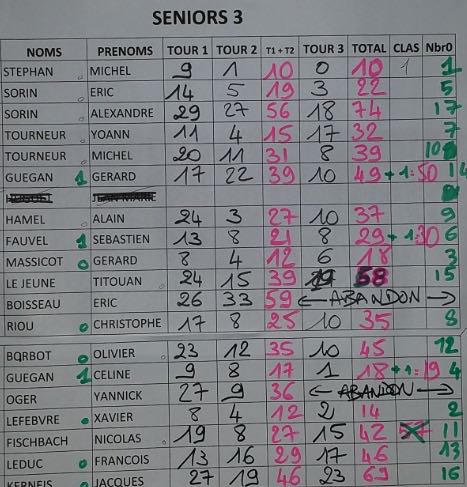 SENIORS 3
NOMS PRENOMS TOUR 1 TOUR 2 T1 + T2 TOUR 3 TOTAL CLAS Nbr0
STEPHAN 0 MICHEL 9 1 10 0 10 1 1
SORIN 0 ERIC 14 5 19 3 22 5
SORIN 0 ALEXANDRE 29 27 56 18 74 17
TOURNEUR 0 YOANN 11 4 15 17 32 7
TOURNEUR 0 MICHEL 20 11 31 8 39 10
GUEGAN 1 GERARD 17 22 39 10 49 + 1 : 50 14
JEAN MARIE
HAMEL 0 ALAIN 24 3 27 10 37 9
FAUVEL 1 SEBASTIEN 13 8 21 8 29 + 1 30 6
MASSICOT 0 GERARD 8 4 12 6 18 3
LE JEUNE TITOUAN 0 24 15 39 19 58 15
BOISSEAU ERIC 26 33 59 ← ABANDON →
RIOU 0 CHRISTOPHE 17 8 25 10 35 8
BQRBOT 0 OLIVIER 23 12 35 10 45 12
GUEGAN 1 CELINE 9 8 17 1 18 + 1 : 19 4
OGER YANNICK 27 9 36 ← ABANDON →
LEFEBVRE 0 XAVIER 8 4 12 2 14 2
FISCHBACH NICOLAS 0 19 8 27 15 42 11
LEDUC 0 FRANCOIS 13 16 29 17 46 13
KERNEIS 0 JACQUES 27 19 46 23 69 16